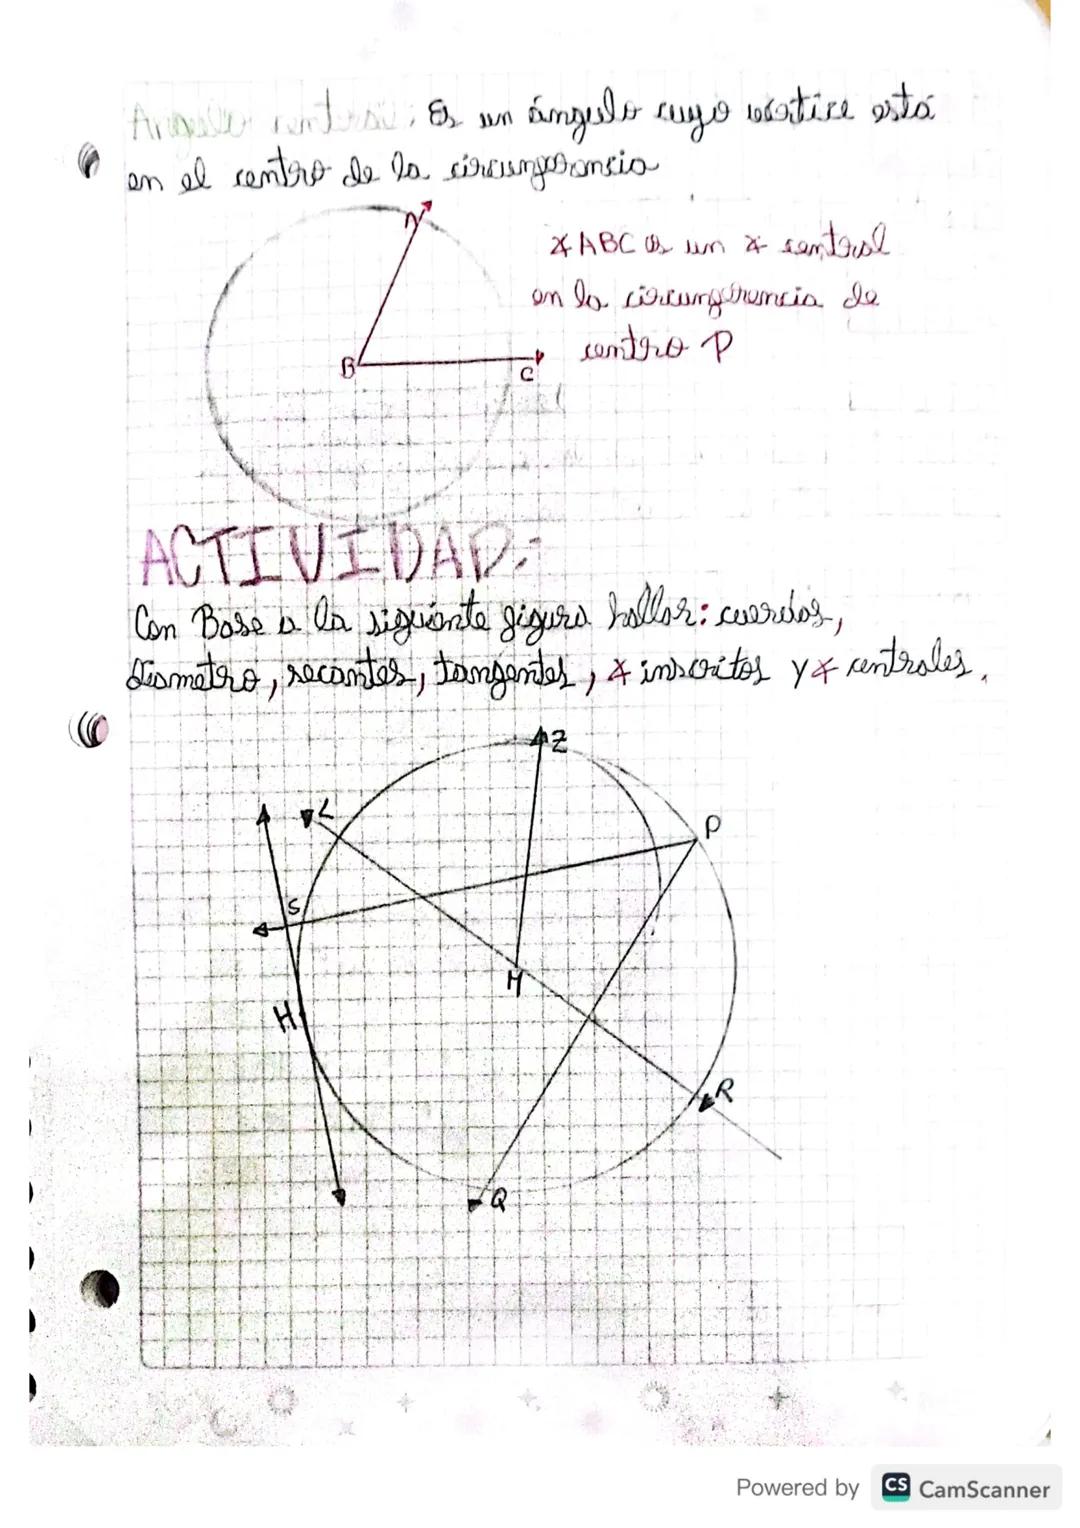 Angulo central: Es un ángulo cuyo vértice está
en el centro de la circunferencia
A
B
C
∡ ABC es un ∡ central
en la circunferencia de
centro P
ACTIVIDAD:
Con Base a la siguiente figura hallar: cuerdas,
diametro, secantes, tangentes, ∡ inscritos y ∡ centrales.
Z
L
P
S
M
H
R
Q
Powered by CS CamScanner